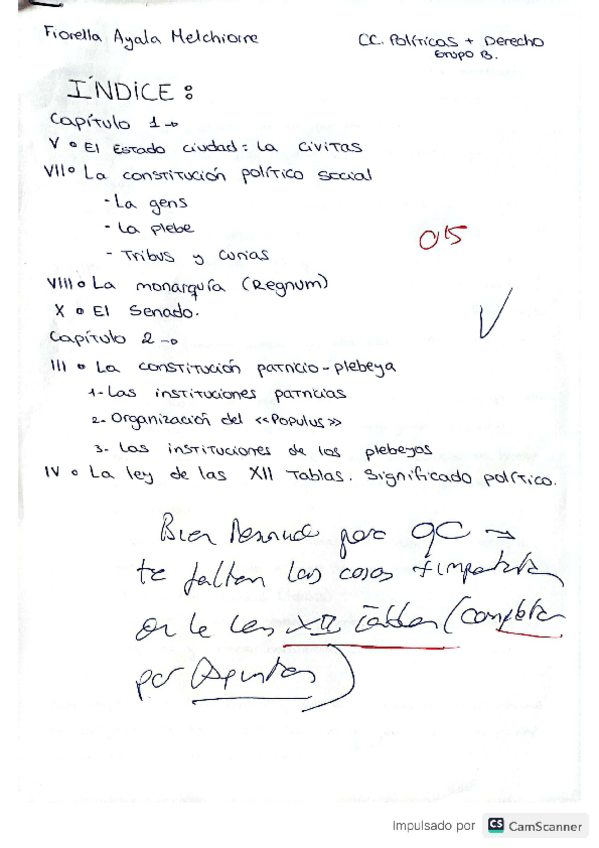 Fiorella Ayala Melchiorre
CC. Políticas + Derecho
Grupo B.
ÍNDICE:
Capítulo 1→
V • El Estado ciudad: La civitas
VII• La constitución político social
- La gens
- La plebe
- Tribus y curias
015
VIII• La monarquía (Regnum)
X • El Senado.
Capítulo 2→
III • La constitución patricio-plebeya
1- Las instituciones patricias
2- Organización del «Populus»
3- Las instituciones de los plebeyos
IV • La ley de las XII Tablas. Significado político.
Bien →
te faltan las cosas
XII Tablas (completar
por Apuntes)
Impulsado por CS CamScanner